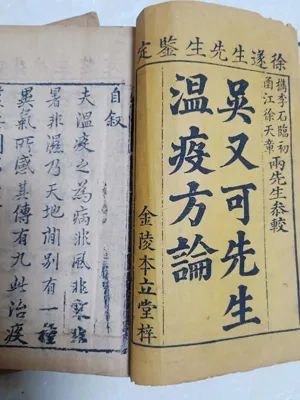 徐遂生先生鑒定
檇李石臨初
甬江徐天章
兩先生恭較
吳又可先生
溫疫方論
金陵本立堂梓
自叙
夫溫疫之為病非風非寒非
暑非濕乃天地間別有一種
異氣所感其傳有九此治疫